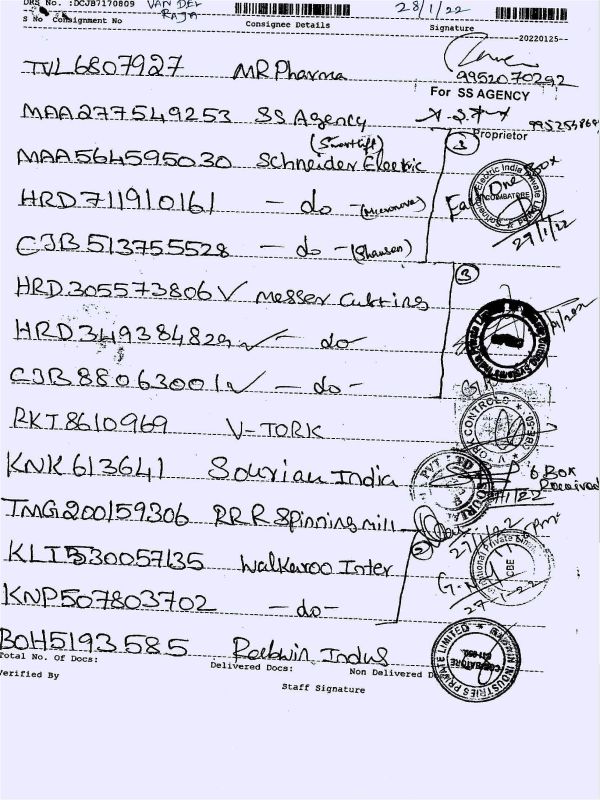 DRS No. :DCJB7170809 VAN DEL RAJA 28/1/22
S No Consignment No Consignee Details Signature
20220125
TVL6807927 MR Pharma 9952070292
For SS AGENCY
MAA277549253 SS Agency
Proprietor
MAA564595030 Schneider Electric 3
HRD711910161 - do -
COIMBATORE
27/1/22
CJB513755528 - do -
HRD305573806 ✓ Messer Cutting 3
HRD349384829 ✓ - do
CJB88063001 ✓ - do -
RKT8610969 V-TORK
V TORK CONTROLS
KNK613641 Sourian India 6 Box Received
PVT LTD
TMG200159306 RRR Spinning mill
27/1/22
2
KLT5330057135 Walkaroo Inter
CBE
27-1-22
KNP507803702 - do -
BOH5193585 Peebwin Indus
INDUSTRIES PRIVATE LIMITED
COIMBATORE
Total No. Of Docs: Delivered Docs: Non Delivered
Verified By Staff Signature